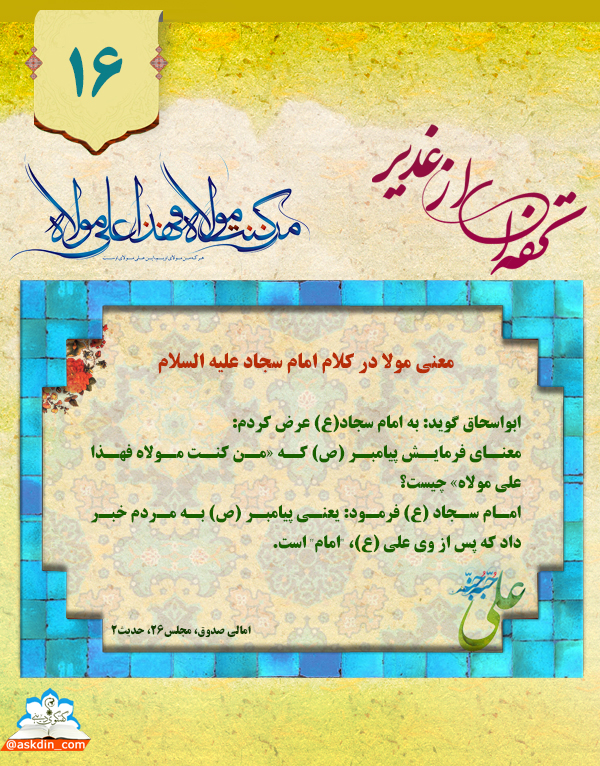 ۱۶
تحفه‌ای از غدیر
من کنت مولاه و هذا علی مولاه
هر که من مولای اویم این علی مولای اوست
معنی مولا در کلام امام سجاد علیه السلام
ابواسحاق گوید: به امام سجاد(ع) عرض کردم:
معنای فرمایش پیامبر (ص) که «من کنت مولاه فهذا
علی مولاه» چیست؟
امام سجاد (ع) فرمود: یعنی پیامبر (ص) به مردم خبر
داد که پس از وی علی (ع)، "امام" است.
علی حبه جنة
امالی صدوق، مجلس۲۶، حدیث۲
@askdin_com